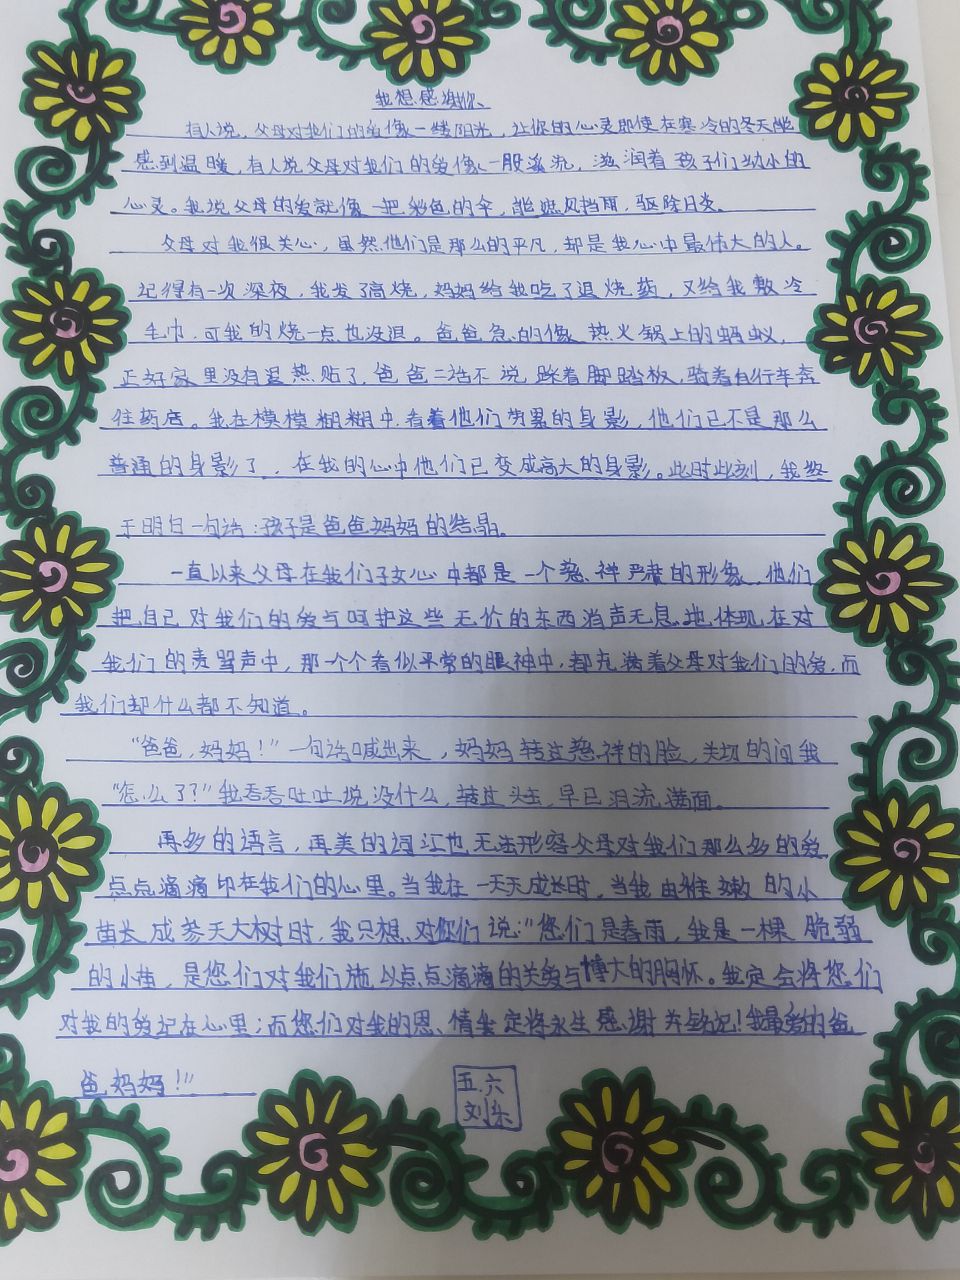 我想感谢你
有人说，父母对我们的爱像一缕阳光，让你的心灵即使在寒冷的冬天能
感到温暖，有人说父母对我们的爱像一股溪流，滋润着孩子们幼小的
心灵。我说父母的爱就像一把彩色的伞，能遮风挡雨，驱除日炎。
父母对我很关心，虽然他们是那么的平凡，却是我心中最伟大的人。
记得有一次深夜，我发了高烧，妈妈给我吃了退烧药，又给我敷冷
毛巾，可我的烧一点也没退。爸爸急的像热火锅上的蚂蚁，
正好家里没有退热贴了，爸爸二话不说踩着脚踏板，骑着自行车奔
往药店。我在模模糊糊中看着他们劳累的身影，他们已不是那么
普通的身影了，在我的心中他们已变成高大的身影。此时此刻，我终
于明白一句话：孩子是爸爸妈妈的结晶。
一直以来父母在我们子女心中都是一个慈祥严肃的形象，他们
把自己对我们的爱与呵护这些无价的东西消声无息地体现在对
我们的责骂声中，那一个个看似平常的眼神中，都充满着父母对我们的爱，而
我们却什么都不知道。
“爸爸，妈妈！”一句话喊出来，妈妈转过慈祥的脸，关切的问我
“怎么了？”我吞吞吐吐说没什么，转过头去，早已泪流满面。
再多的语言，再美的词汇也无法形容父母对我们那么多的爱，
点点滴滴印在我们的心里。当我在一天天成长时，当我由稚嫩的小
苗长成参天大树时，我只想对你们说：“您们是春雨，我是一棵脆弱
的小苗，是您们对我们施以点点滴滴的关爱与博大的胸怀。我定会将您们
对我的爱记在心里；而您们对我的恩情我定将永生感谢并铭记！我最爱的爸
爸妈妈！”
五.六
刘乐